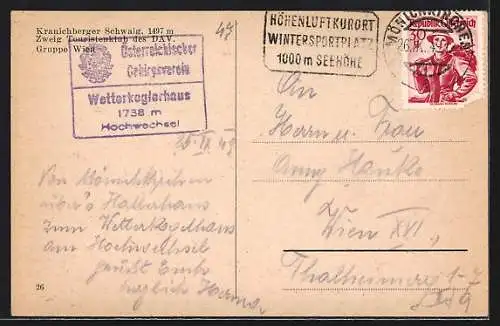 Kranichberger Schwaig, 1497 m
Zweig Touristenklub des DAV.
Gruppe Wien
47
Österreichischer
Gebirgsverein
Wetterkoglerhaus
1738 m
Hochwechsel
HÖHENLUFTKURORT
WINTERSPORTPLATZ
1000 m SEEHÖHE
MÖNICHKIRCHEN
30
25. IX 49
An
Herrn u. Frau
Anny Hanke
Wien XVI.
Thalheimerg. 1-7
Von Mönichkirchen
über's Hallerhaus
zum Wetterkoglerhaus
am Hochwechsel
grüßt Euch
herzlich
26